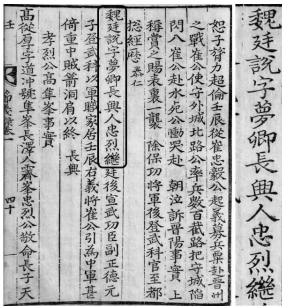 魏廷說字夢卿長興人忠烈繼
恕子膂力超倫壬辰從崔忠毅公起義募兵粟赴晋州
之戰崔公使守外城北路公率兵數百截把守城陷
閃八崔公赴水死公慟哭赴 朝泣訴晋陽事實 上
稱賞之賜衣裏一襲 除保功將軍後登武科官至都
摠經歷 泰仁
魏廷說字夢卿長興人忠烈繼廷後宣武功臣副正德元
子登武科以軍職家居壬辰右義將崔公引為中軍甚
倚重中賊箭洞肩以終 長興
孝烈公高隼峯事實
高從厚字道冲號隼峯長澤人霽峯忠烈公敬命長子天
壬 卷一 四十